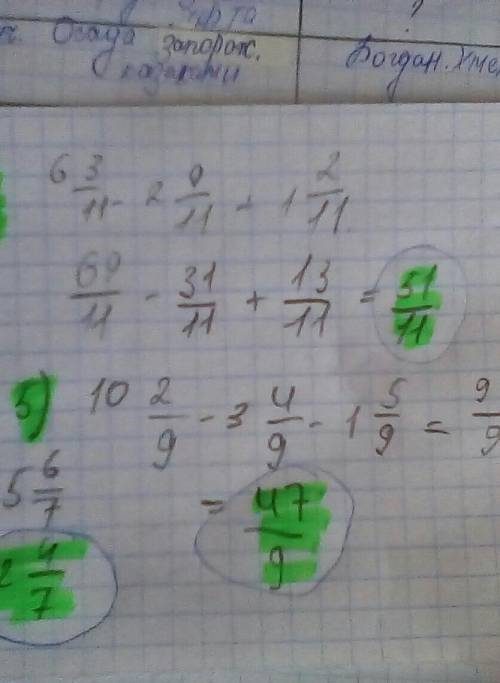 Осада запорож.
казаками
Богдан. Хме
?
6 3/11 - 2 9/11 + 1 2/11
69/11 - 31/11 + 13/11 = 51/11
5) 10 2/9 - 3 4/9 - 1 5/9 = 9/9
5 6/7
= 47/9
2 4/7